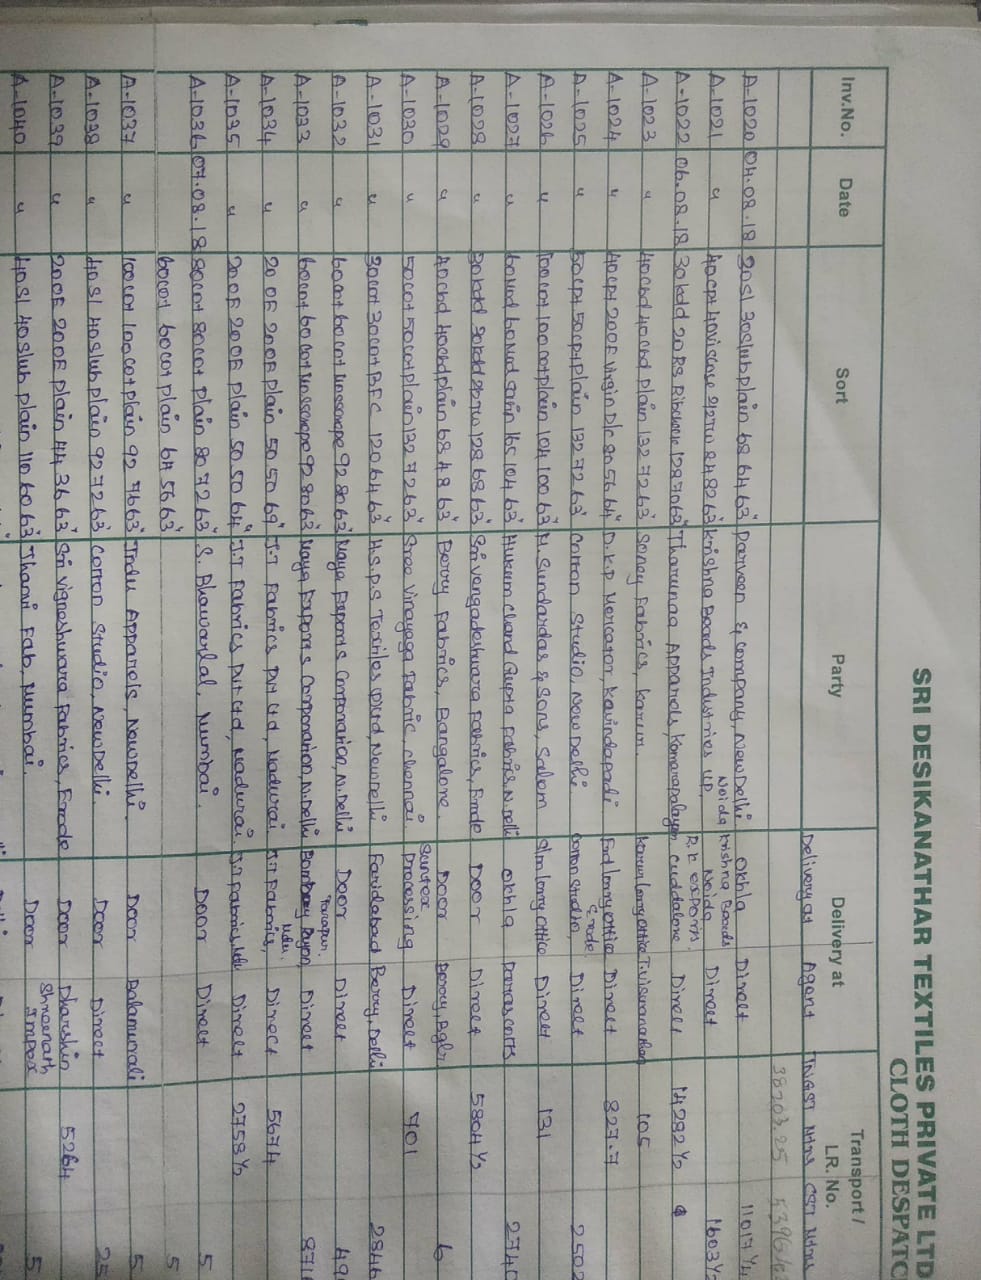 SRI DESIKANATHAR TEXTILES PRIVATE LTD
CLOTH DESPATC
Inv.No. Date Sort Party Delivery at Transport / LR. No.
Delivery at Agent TNGST Mtrs CST Mtrs
38203.25
A-1020 04.08.18 30sl 30slub plain 68 64 63" Parveen & company, New Delhi Okhla Direct 11017 1/4
A-1021 " 40cpt 40viscose 2/2 Tw 84 82 63" Krishna Beads Industries UP, Noida Krishna Beads Noida Direct 1603 1/2
A-1022 06.08.18 30kdd 20Rs 128 70 63" Tharunaa Apparels, Komarapalayam R.K exports, Cuddalore Direct 14282 1/2
A-1023 " 40cbd 40cbd plain 132 72 63" Soney Fabrics, Karur Karur lorry office 105
A-1024 " 40cpt 20OE Virgin D/c 80 56 64" D.K.P Mercator, Kavindapadi Erd lorry office Direct 827.7
A-1025 " 50cpt 50cpt plain 132 72 63" Cotton Studio, New Delhi Cotton Studio, Erode Direct 2502
A-1026 " 100cot 100cot plain 104 100 63" N. Sundardas & Sons, Salem Slm lorry office Direct 131
A-1027 " 60Mod 60Mod Satin 165 104 63" Hukum Chand Gupta Fabrics, N. Delhi Okhla 2740
A-1028 " 30kdd 30kdd 128 68 63" Sri Vengadeshwara Fabrics, Erode Door Direct 5804 1/2
A-1029 " 40cbd 40cbd plain 68 48 63" Berry Fabrics, Bangalore. Door Berry, Bglr 6
A-1030 " 50cot 50cot plain 132 72 63" Sree Vinayaga Fabric, chennai. Santex Processing Direct 901
A-1031 " 30cot 30cot BFC 120 64 63" H.S.P.S Textiles (P) Ltd, New Delhi Faridabad Berry, Delhi 2846
A-1032 " 60cot 60cot 92 80 63" Maya Exports Corporation, N. Delhi Door Direct 49
A-1033 " 60cot 60cot 92 80 63" Maya Exports Corporation, N. Delhi Bombay Rayon, Tarapur. Direct 871
A-1034 " 20OE 20OE plain 50 50 69" J.J Fabrics Pvt Ltd, Madurai J.J Fabrics, Mdu. Direct 5674
A-1035 " 20OE 20OE plain 50 50 64" J.J Fabrics Pvt Ltd, Madurai. J.J Fabrics, Mdu Direct 2758 1/2
A-1036 07.08.18 80cot 80cot plain 80 72 63" S. Bhawarlal, Mumbai. Door Direct 5
60cot 60cot plain 64 56 63" 5
A-1037 " 100cot 100cot plain 92 76 63" Indu Apparels, New Delhi. Door Balamurali 5
A-1038 " 40sl 40slub plain 92 72 63" Cotton Studio, New Delhi. Door Direct 25
A-1039 " 20OE 20OE plain 44 36 63" Sri Vigneshwara Fabrics, Erode Door Dharshin 5264
A-1040 " 40sl 40slub plain 110 60 63" Thanvi Fab, Mumbai. Door Shreenath Impex 5